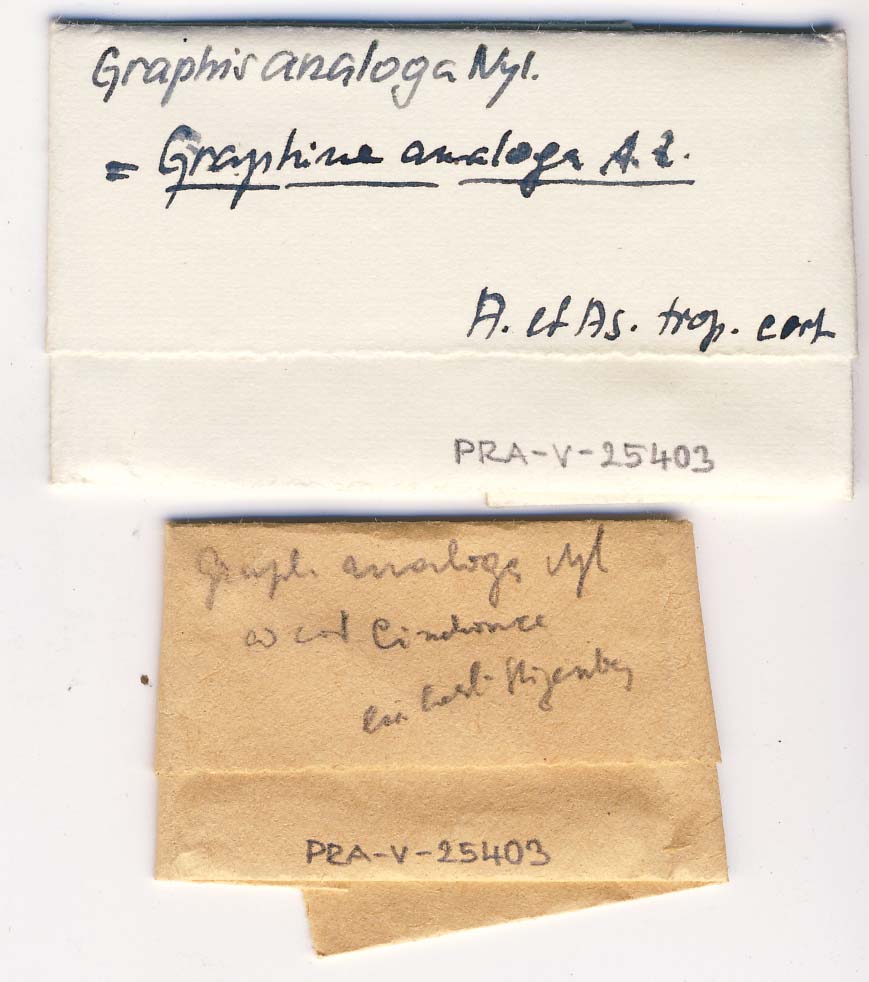 Graphis analoga Nyl.
= Graphina analoga A. Z.
A. et As. trop. cort
PRA-V-25403
Graph. analoga Nyl
Cinchonae
Stizenbg
PRA-V-25403